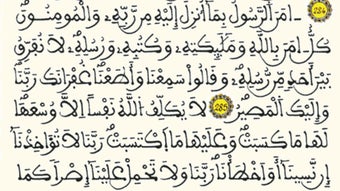 284 ءامن الرسول بما أنزل إليه من ربه والمومنون
كل ءامن بالله وملئكته وكتبه ورسله لا نفرق
بين أحد من رسله وقالوا سمعنا وأطعنا غفرانك ربنا
وإليك المصير 285 لا يكلف الله نفسا الا وسعها
لها ما كسبت وعليها ما اكتسبت ربنا لا تواخذنا
إن نسينا أو اخطأنا ربنا ولا تحمل علينا إصرا كما